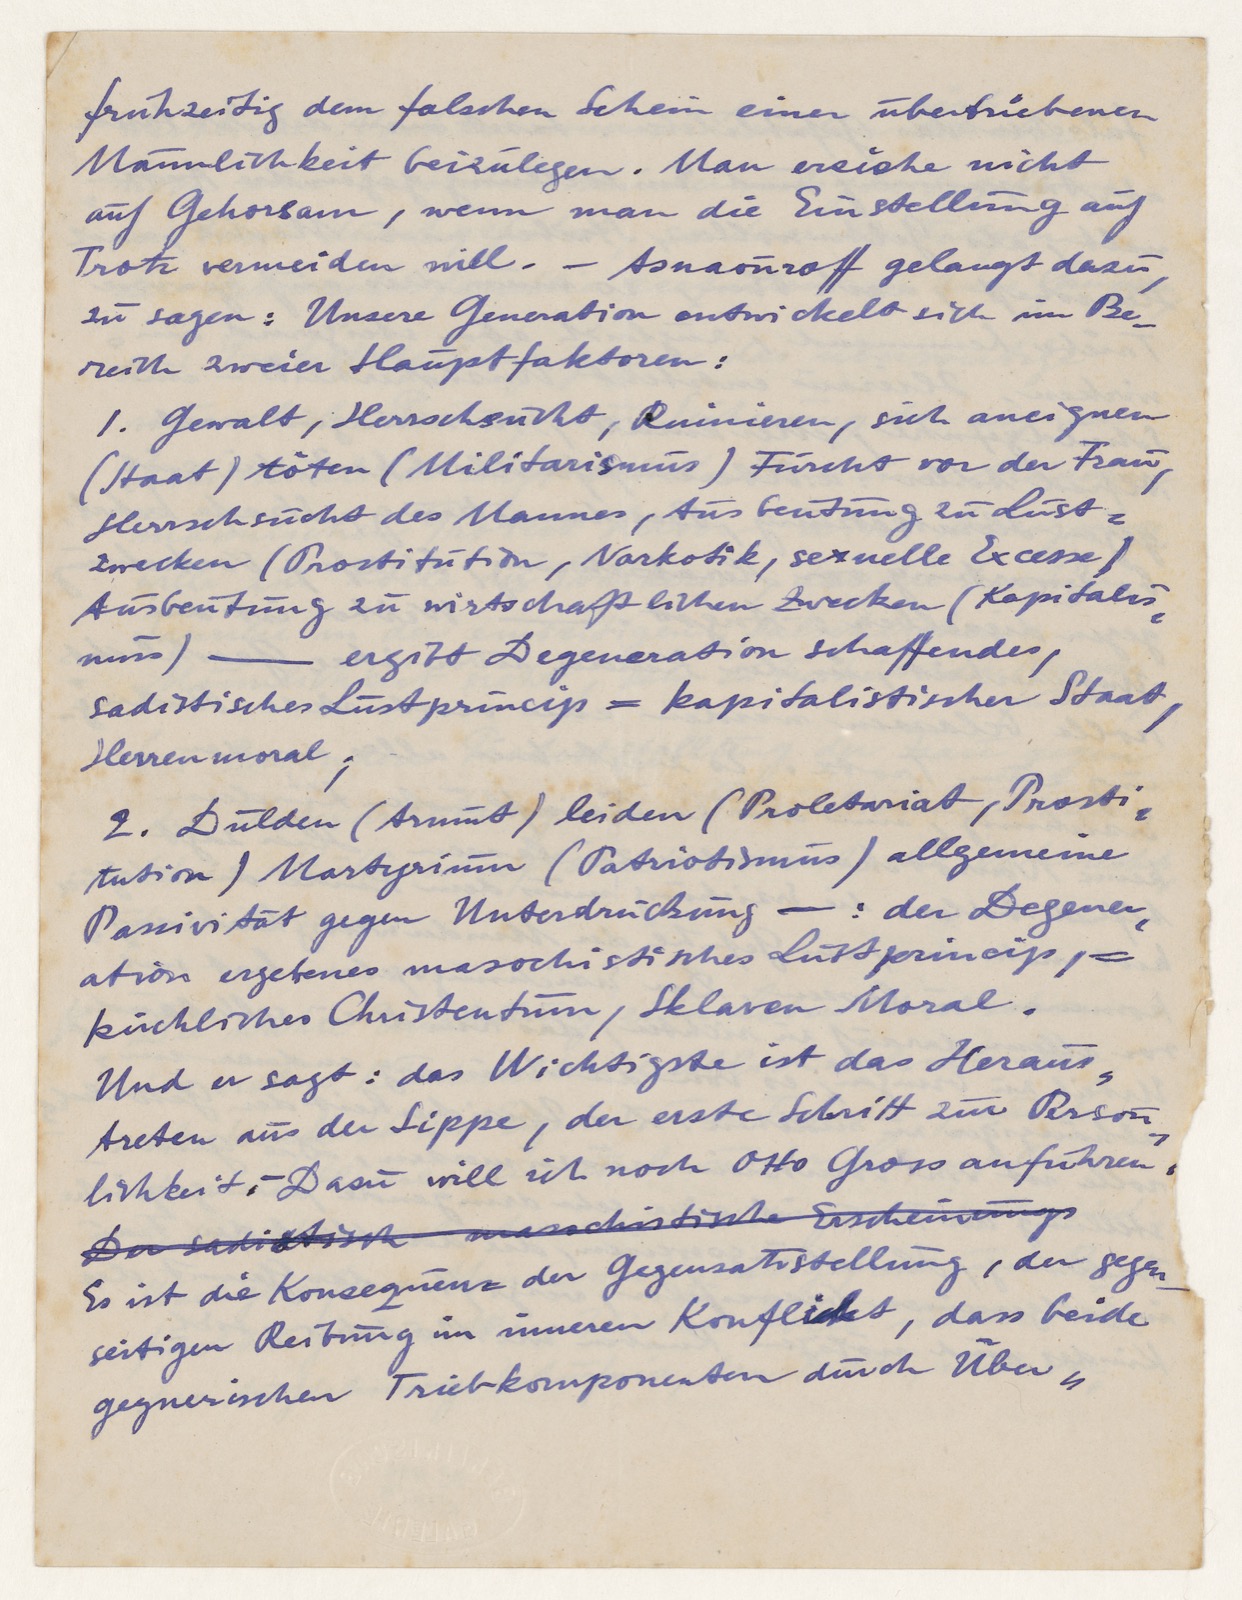 frühzeitig dem falschen Schein einer übertriebenen
Männlichkeit beizulegen. Man erziehe nicht
auf Gehorsam, wenn man die Einstellung auf
Trotz vermeiden will. – Asnaouroff gelangt dazu,
zu sagen: Unsere Generation entwickelt sich im Be-
reich zweier Hauptfaktoren:
1. Gewalt, Herrschsucht, Ruinieren, sich aneignen
(Staat) töten (Militarismus) Furcht vor der Frau,
Herrschsucht des Mannes, Ausbeutung zu Lust-
zwecken (Prostitution, Narkotik, sexuelle Excesse)
Ausbeutung zu wirtschaftlichen Zwecken (Kapitalis-
mus) — ergibt Degeneration schaffendes,
sadistisches Lustprincip = kapitalistischer Staat,
Herrenmoral;
2. Dulden (Armut) leiden (Proletariat, Prosti-
tution) Martyrium (Patriotismus) allgemeine
Passivität gegen Unterdrückung — : der Degener-
ation ergebenes masochistisches Lustprincip, =
kirchliches Christentum, Sklaven Moral.
Und er sagt: das Wichtigste ist das Heraus-
treten aus der Sippe, der erste Schritt zur Persön-
lichkeit. – Dazu will ich noch Otto Gross anführen.
Der sadistisch masochistische Erscheinungs
Es ist die Konsequenz der Gegensatzstellung, der gegen-
seitigen Reibung im inneren Konflikt, dass beide
gegnerischen Triebkomponenten durch Über-